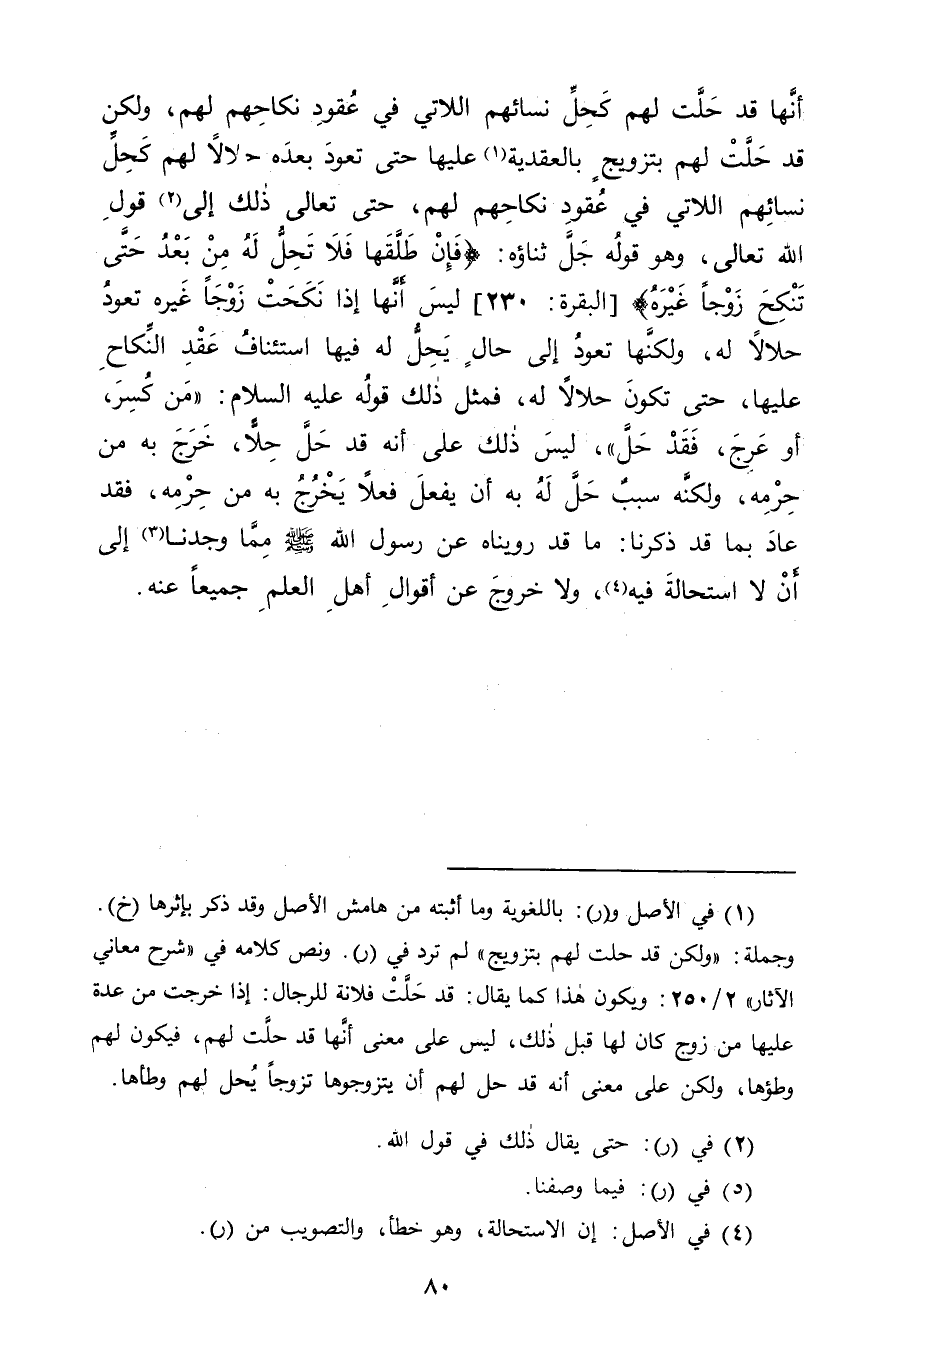 أنَّها قد حَلَّت لهم كَحِلِّ نسائهم اللاتي في عُقودِ نكاحِهم لهم، ولكن
قد حَلَّتْ لهم بتزويجٍ بالعقدية(١) عليها حتى تعودَ بعدَه حلالًا لهم كَحِلِّ
نسائِهم اللاتي في عُقودِ نكاحِهم لهم، حتى تعالى ذٰلك إلى(٢) قولِ
الله تعالى، وهو قولُه جَلَّ ثناؤه: ﴿فَإِنْ طَلَّقَها فَلَا تَحِلُّ لَهُ مِنْ بَعْدُ حَتَّى
تَنْكِحَ زَوْجاً غَيْرَهُ﴾ [البقرة: ٢٣٠] ليسَ أَنَّها إذا نَكَحَتْ زَوْجَاً غَيره تعودُ
حلالًا له، ولكنَّها تعودُ إلى حالٍ يَحِلُّ له فيها استئنافُ عَقْدِ النِّكاحِ
عليها، حتى تكونَ حلالًا له، فمثل ذٰلك قولُه عليه السلام: «مَن كُسِرَ،
أو عَرِجَ، فَقَدْ حَلَّ»، ليسَ ذٰلك على أنه قد حَلَّ حِلًّا، خَرَجَ به من
حِرْمِه، ولكنَّه سببٌ حَلَّ لَهُ به أن يفعلَ فعلًا يَخْرُجُ به من حِرْمِه، فقد
عادَ بما قد ذكرنا: ما قد رويناه عن رسول الله ﷺ مِمَّا وجدنا(٣) إلى
أَنْ لا استحالةَ فيه(٤)، ولا خروجَ عن أقوالِ أهلِ العلمِ جميعاً عنه.
(١) في الأصل و(ر): باللغوية وما أثبته من هامش الأصل وقد ذكر بإثرها (خ).
وجملة: «ولكن قد حلت لهم بتزويج» لم ترد في (ر). ونص كلامه في «شرح معاني
الآثار» ٢/٢٥٠: ويكون هٰذا كما يقال: قد حَلَّتْ فلانة للرجال: إذا خرجت من عدة
عليها من زوج كان لها قبل ذٰلك، ليس على معنى أنَّها قد حلَّت لهم، فيكون لهم
وطؤها، ولكن على معنى أنه قد حل لهم أن يتزوجوها تزوجاً يُحل لهم وطأها.
(٢) في (ر): حتى يقال ذٰلك في قول الله.
(٥) في (ر): فيما وصفنا.
(٤) في الأصل: إن الاستحالة، وهو خطأ، والتصويب من (ر).
٨٠